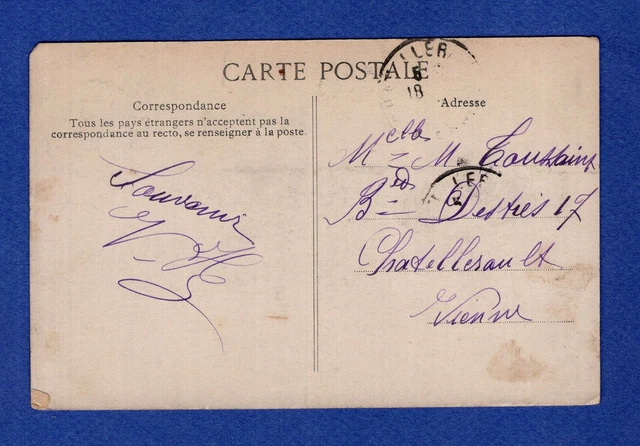 CARTE POSTALE
Correspondance
Tous les pays étrangers n'acceptent pas la
correspondance au recto, se renseigner à la poste.
Souvenir
Adresse
Melle M. Toussaint
Bd 17
Chatellerault
Vienne
ILER
5
18
LE